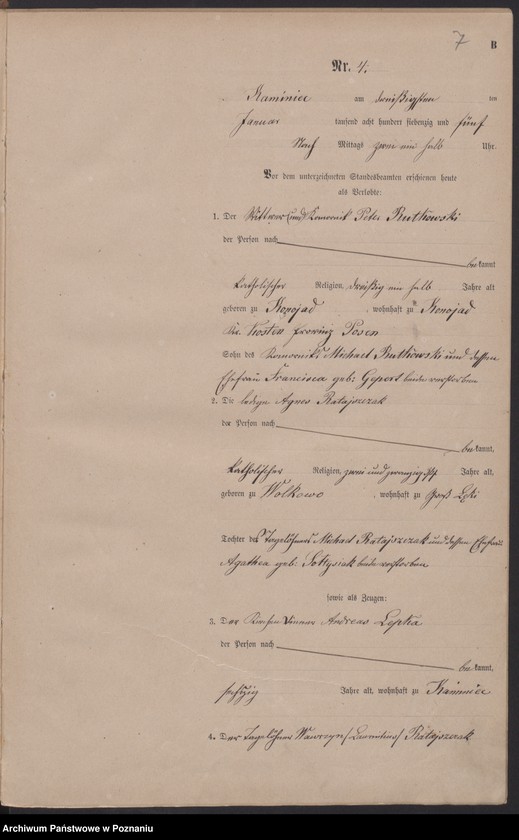 7
B
Nr. 4.
Kaminiec am dreißigsten ten
Januar tausend acht hundert siebenzig und fünf
Nach Mittags zwei ein halb Uhr.
Vor dem unterzeichneten Standesbeamten erschienen heute
als Verlobte:
1. Der Wittwer (und) Komornik Peter Rutkowski
der Person nach
bekannt
katholischer Religion, dreißig ein halb Jahre alt
geboren zu Konojad, wohnhaft zu Konojad
Kr. Kosten Provinz Posen
Sohn des Komorniks Michael Rutkowski und dessen
Ehefrau Francisca geb: Gepert beide verstorben
2. Die ledige Agnes Ratajszczak
der Person nach
bekannt,
katholischer Religion, zwei und zwanzig Jahre alt,
geboren zu Wolkowo, wohnhaft zu Groß Lęki
Tochter des Tagelöhners Michael Ratajszczak und dessen Ehefrau
Agathea geb: Sołtysiak beide verstorben
sowie als Zeugen:
3. Der Andreas Lepka
der Person nach
bekannt,
sechzig Jahre alt, wohnhaft zu Kaminiec
4. Der Tagelöhner Wawrzyn / Laurentius / Ratajszczak
Archiwum Państwowe w Poznaniu